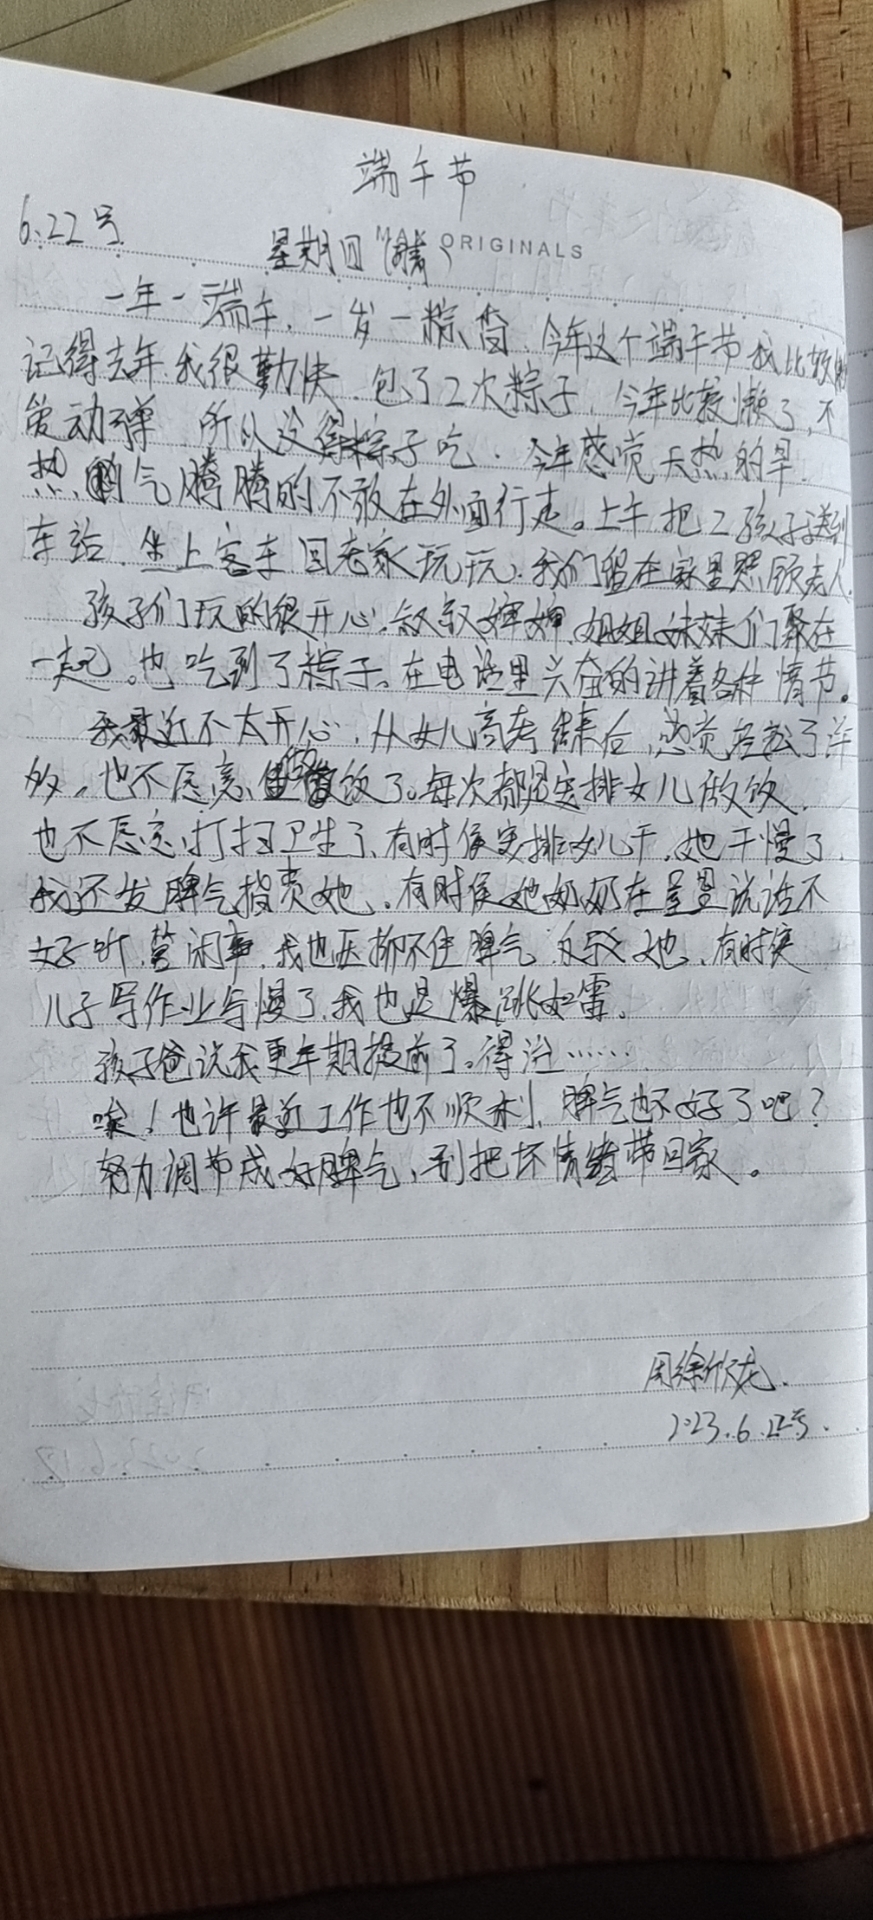 端午节
6.22号
MAX ORIGINALS
星期四（晴）
一年一端午，一岁一粽香。今年这个端午节我比较
记得去年我很勤快，包了2次粽子，今年比较懒了，不
能动弹，所以没得粽子吃。今年感觉天热的早，
热的气腾腾的不敢在外面行走。上午把2孩子送到
车站，坐上客车回老家玩玩，我们留在家里照顾老人。
孩子们玩的很开心，叔叔婶婶，姐姐妹妹们聚在
一起。也吃到了粽子。在电话里兴奋的讲着各种情节。
我最近不太开心，从女儿高考结束后，感觉轻松了许
多，也不愿意做饭了。每次都安排女儿做饭，
也不愿意打扫卫生了，有时候安排女儿干，她干慢了，
我还发脾气指责她，有时候她奶奶在说话不
好听，管闲事，我也压抑不住脾气，反驳她，有时候
儿子写作业写慢了，我也是爆跳如雷。
孩子爸说我更年期提前了。得治……
唉！也许最近工作也不顺利，脾气也不好了吧？
努力调节成好脾气，别把坏情绪带回家。
周徐欣龙.
2023.6.22号.